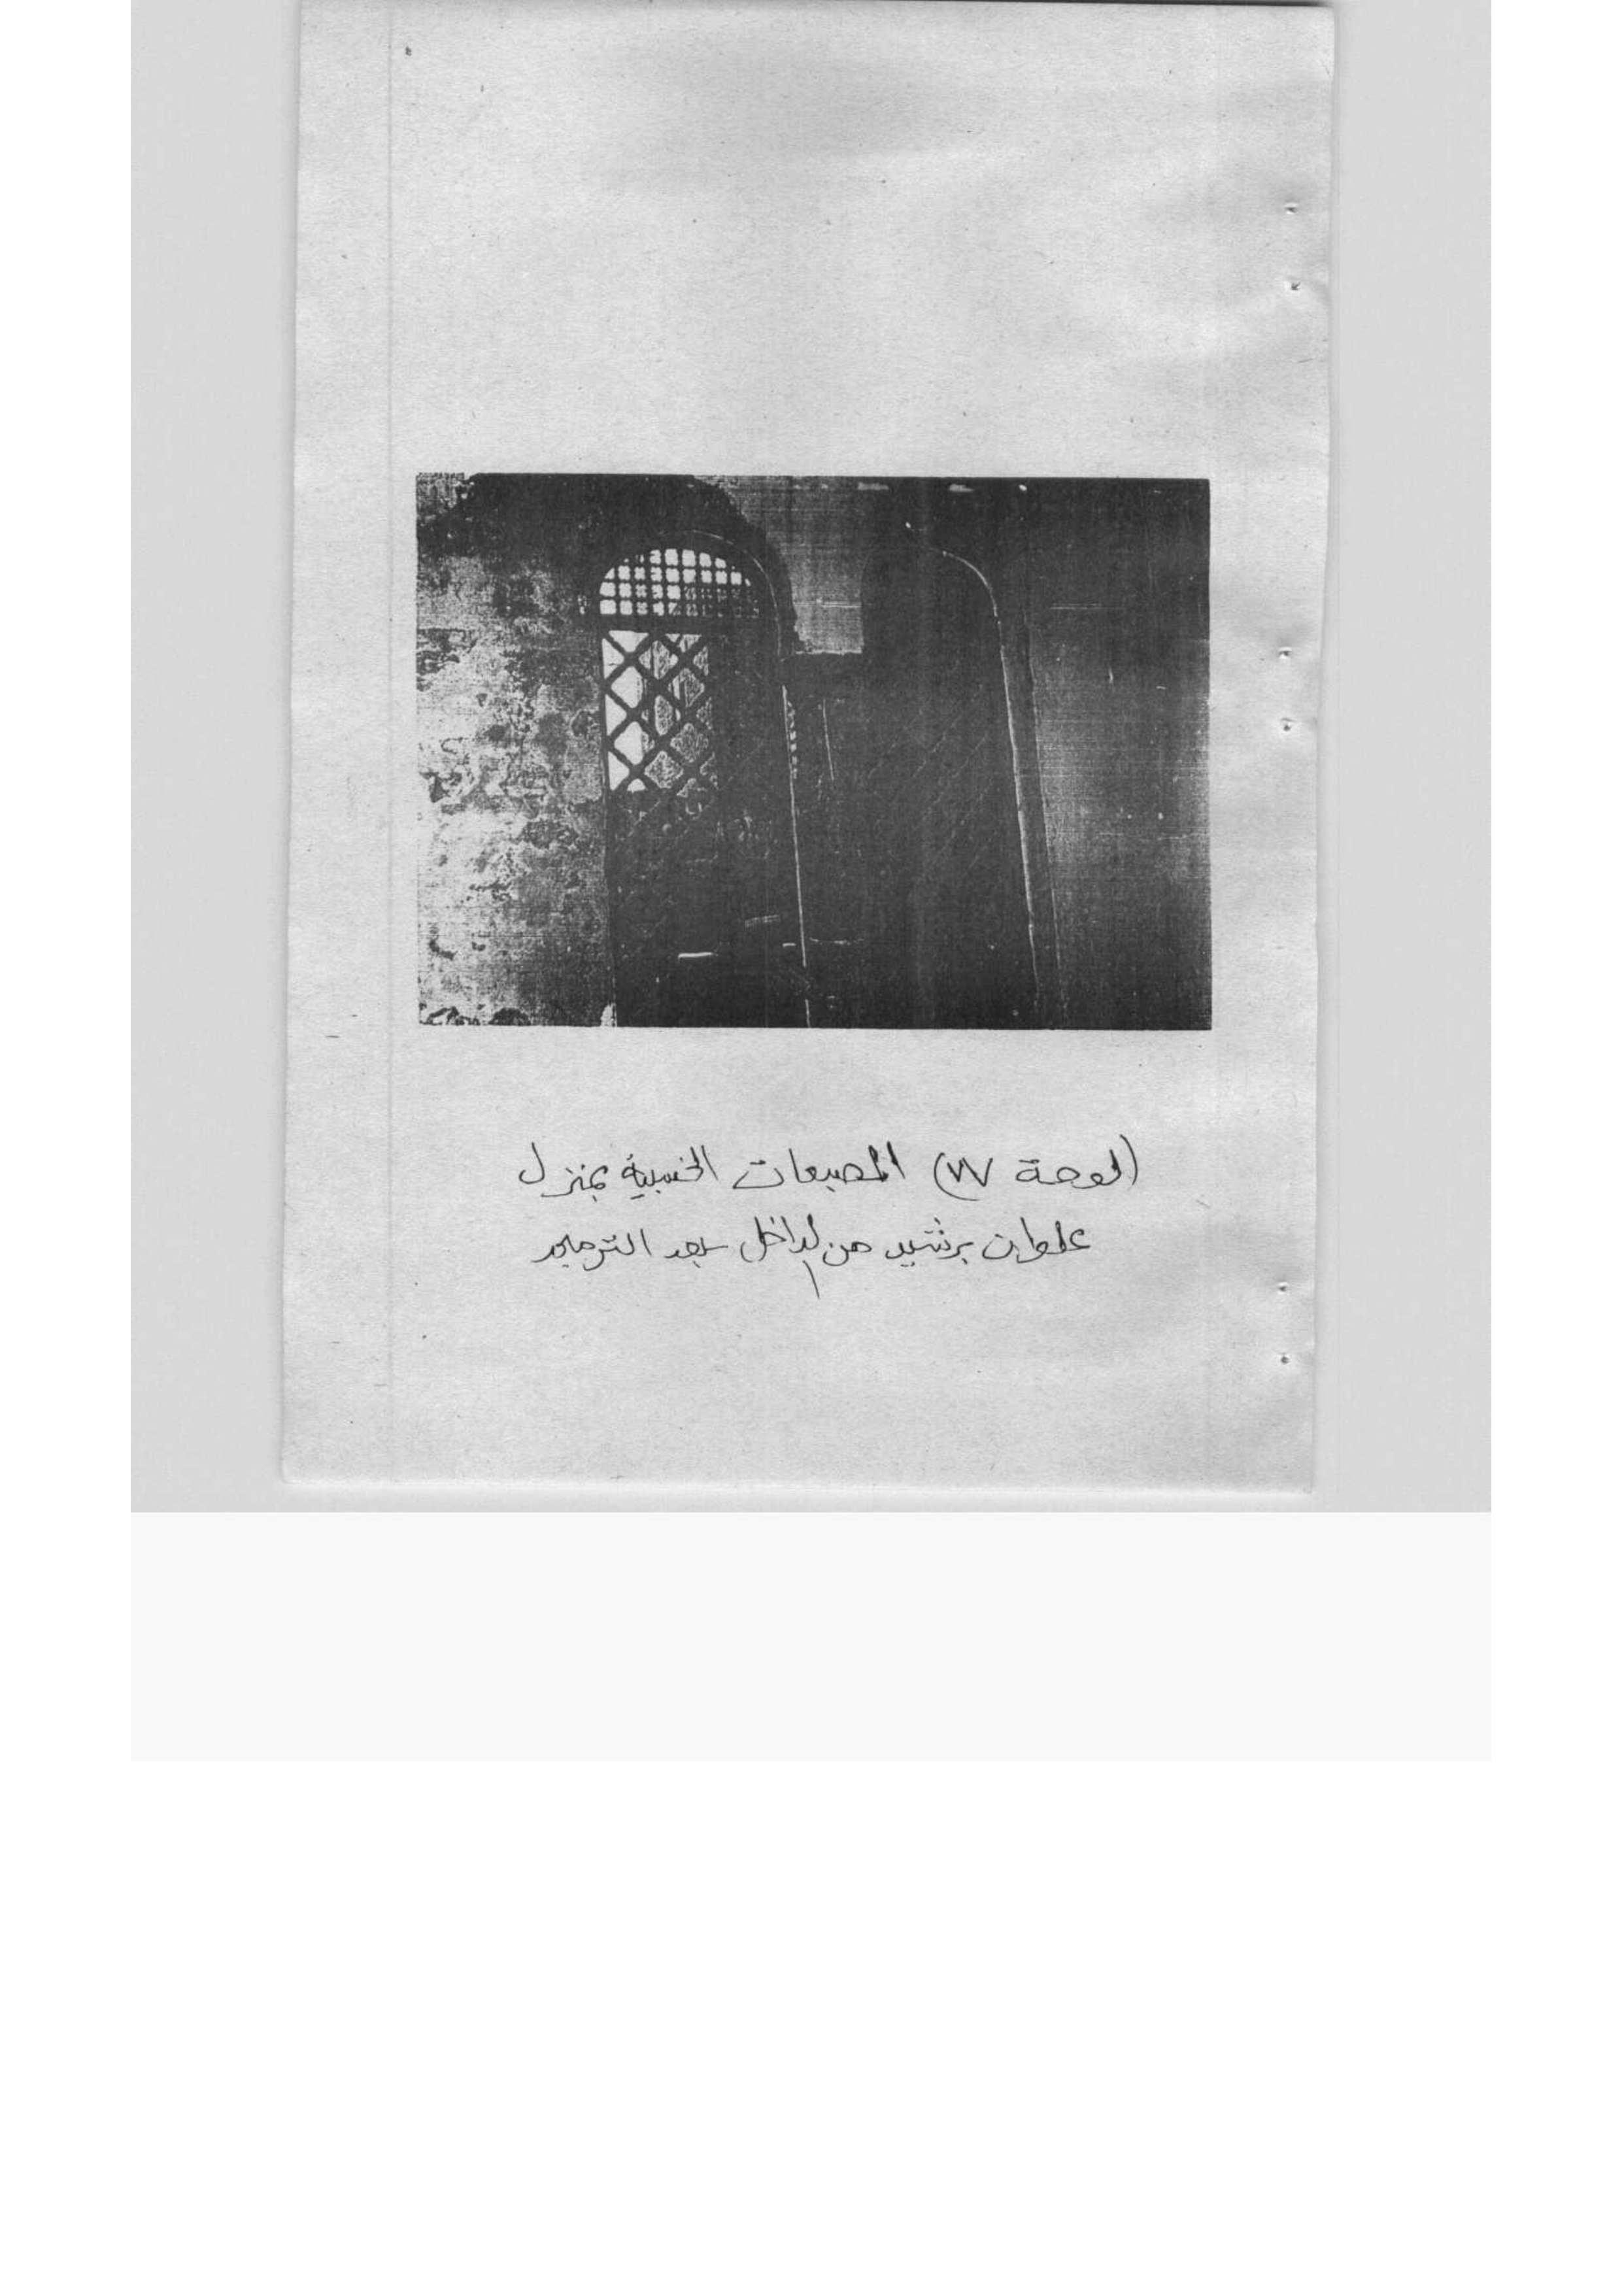 (لوحة ٧٧) المصبعات الخشبية بمنزل
علوان برشيد من الداخل بعد الترميم